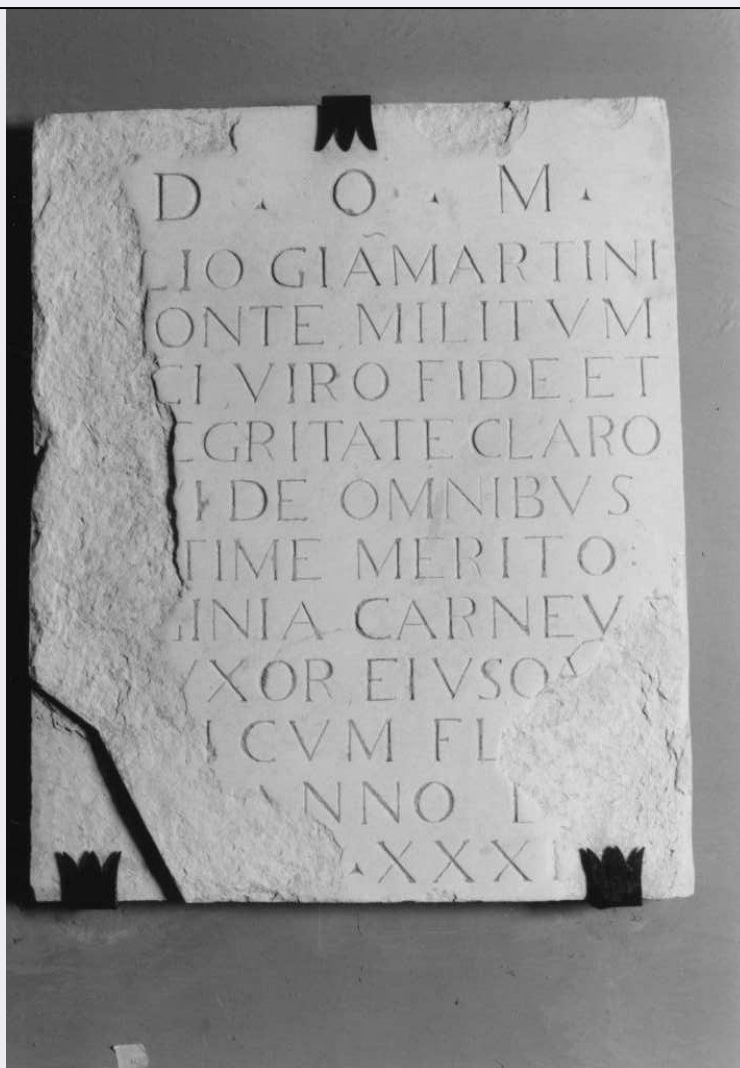 D · O · M ·
LIO GIÃMARTINI
ONTE MILITVM
CI VIRO FIDE ET
EGRITATE CLARO
DE OMNIBVS
TIME MERITO
INIA CARNEV
VXOR EIVSQ
CVM FL
ANNO
· XXXI